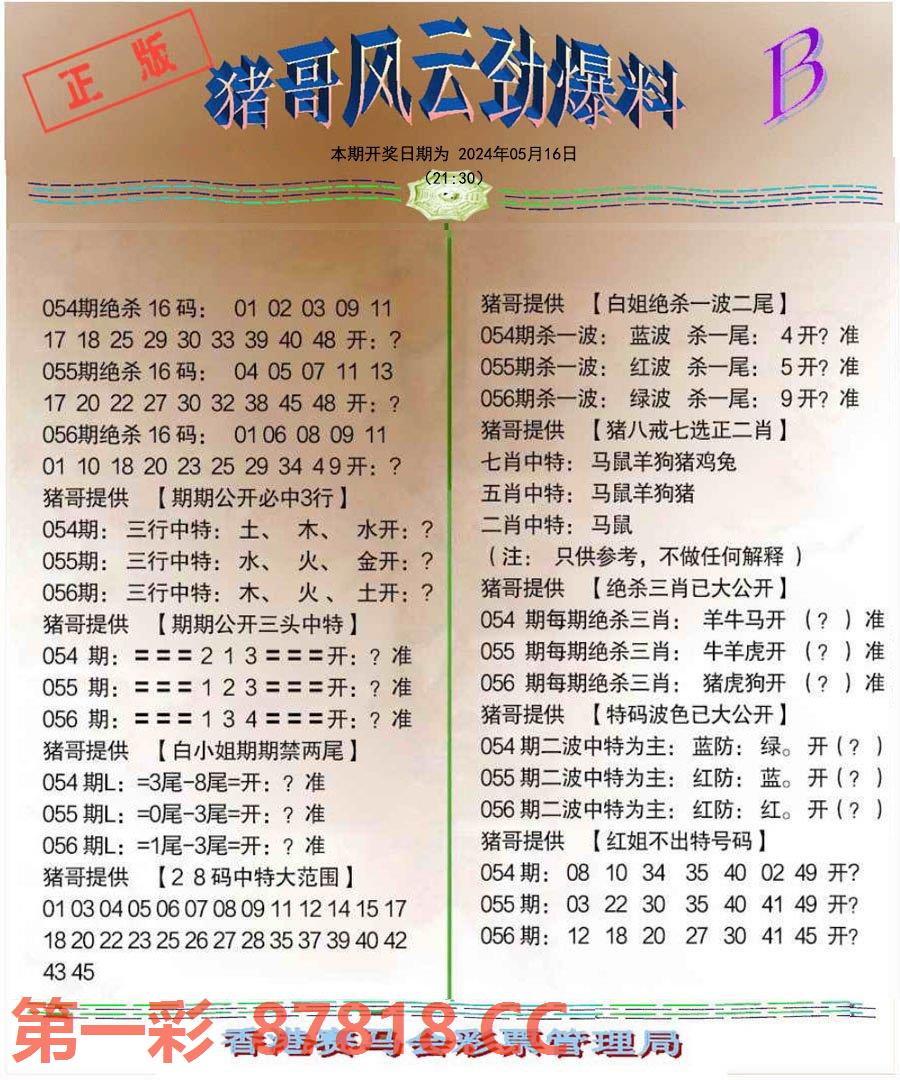 正版
猪哥风云劲爆料
B
本期开奖日期为 2024年05月16日
（21:30）
054期绝杀16码： 01 02 03 09 11
17 18 25 29 30 33 39 40 48 开：?
055期绝杀16码： 04 05 07 11 13
17 20 22 27 30 32 38 45 48 开：?
056期绝杀16码： 01 06 08 09 11
01 10 18 20 23 25 29 34 4 9 开：?
猪哥提供 【期期公开必中3行】
054期：三行中特：土、 木、 水开：?
055期：三行中特：水、 火、 金开：?
056期：三行中特：木、 火、 土开：?
猪哥提供 【期期公开三头中特】
054 期：===2 1 3===开：? 准
055 期：===1 2 3===开：? 准
056 期：===1 3 4===开：? 准
猪哥提供 【白小姐期期禁两尾】
054期L：=3尾-8尾=开：? 准
055期L：=0尾-3尾=开：? 准
056期L：=1尾-3尾=开：? 准
猪哥提供 【2 8码中特大范围】
01 03 04 05 06 07 08 09 11 12 14 15 17
18 20 22 23 25 26 27 28 35 37 39 40 42
43 45
猪哥提供 【白姐绝杀一波二尾】
054期杀一波： 蓝波 杀一尾： 4开? 准
055期杀一波： 红波 杀一尾： 5开? 准
056期杀一波： 绿波 杀一尾： 9开? 准
猪哥提供 【猪八戒七选正二肖】
七肖中特： 马鼠羊狗猪鸡兔
五肖中特： 马鼠羊狗猪
二肖中特： 马鼠
（注： 只供参考，不做任何解释）
猪哥提供 【绝杀三肖已大公开】
054 期每期绝杀三肖： 羊牛马开 （? ）准
055 期每期绝杀三肖： 牛羊虎开 （? ）准
056 期每期绝杀三肖： 猪虎狗开 （? ）准
猪哥提供 【特码波色已大公开】
054期二波中特为主：蓝防：绿。开（? ）
055期二波中特为主：红防：蓝。开（? ）
056期二波中特为主：红防：红。开（? ）
猪哥提供 【红姐不出特号码】
054期：08 10 34 35 40 02 49 开?
055期：03 22 30 35 40 41 49 开?
056期：12 18 20 27 30 41 45 开?
第一彩 87818.CC
香港赛马会彩票管理局